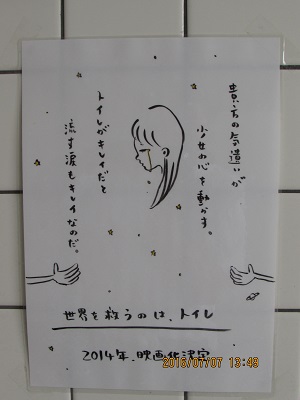 貴方の気遣いが
少女の心を動かす。
トイレがキレイだと
流す涙もキレイなのだ。
世界を救うのは、トイレ
2014年、映画化決定
2016/07/07 13:49